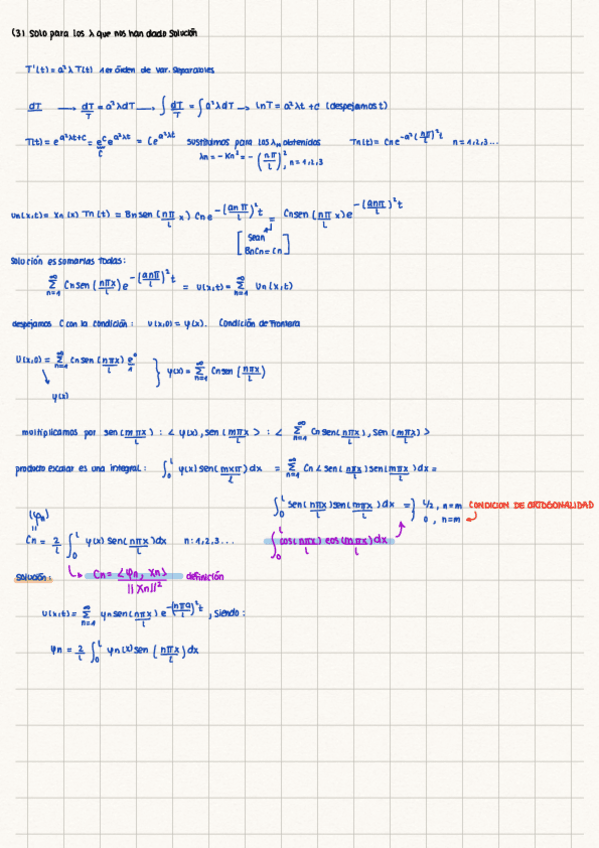 (3) Solo para los λ que nos han dado solución
T'(t) = a²λ T(t) 1er órden de var. separables
dT → dT/T = a²λdT → ∫ dT/T = ∫ a²λdT → lnT = a²λt + c (despejamos t)
T(t) = e^(a²λt+c) = e^c e^(a²λt) = C e^(a²λt) sustituimos para los λn obtenidos Tn(t) = Cn e^(-a²(nπ/L)²t) n = 1,2,3...
C λn = -Kn² = -(nπ/L)², n = 1,2,3
un(x,t) = Xn(x) Tn(t) = Bn sen(nπ/L x) Cn e^(-(anπ/L)²t) = Cn sen(nπ/L x) e^(-(anπ/L)²t)
[Sean BnCn = Cn]
Solución es sumarlas todas:
∑n=1^∞ Cn sen(nπx/L) e^(-(anπ/L)²t) = u(x,t) = ∑n=1^∞ Un(x,t)
despejamos C con la condición: u(x,0) = φ(x). Condición de frontera
U(x,0) = ∑n=1^∞ Cn sen(nπx/L) e^0 } φ(x) = ∑n=1^∞ Cn sen(nπx/L)
1
φ(x)
multiplicamos por sen(mπx/L) : < φ(x), sen(mπx/L) > : < ∑n=1^∞ Cn sen(nπx/L), sen(mπx/L) >
producto escalar es una integral: ∫0^L φ(x) sen(mπx/L) dx = ∑n=1^∞ Cn < sen(nπx/L) sen(mπx/L) dx =
∫0^L sen(nπx/L) sen(mπx/L) dx = } L/2, n=m CONDICION DE ORTOGONALIDAD
0, n=m
(φn)
"
Cn = 2/L ∫0^L φ(x) sen(nπx/L) dx n: 1,2,3... ∫0^L cos(nπx/L) cos(mπx/L) dx
Solución: Cn = <φn, Xn>/||Xn||² definición
u(x,t) = ∑n=1^∞ φn sen(nπx/L) e^(-(nπa/L)²t), siendo:
φn = 2/L ∫0^L φn(x) sen(nπx/L) dx